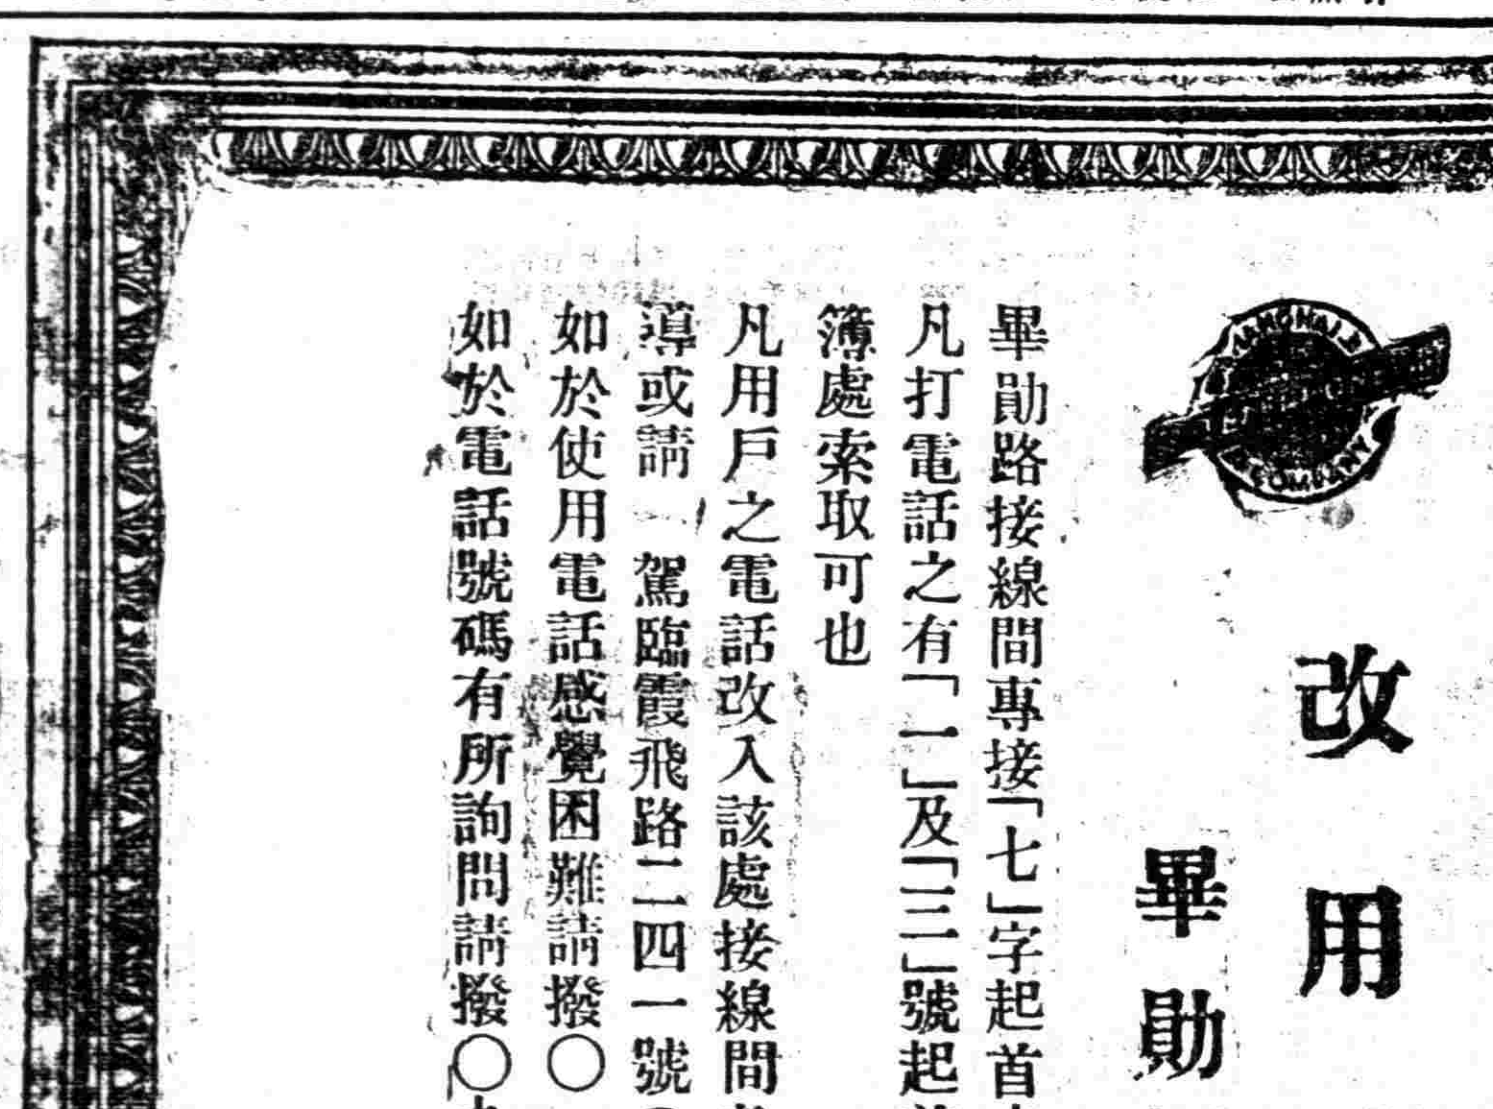 改用
畢勛
畢勛路接線間專接「七」字起首
凡打電話之有「一」及「三」號起
簿處索取可也
凡用戶之電話改入該處接線間
導或請 駕臨霞飛路二四一號
如於使用電話感覺困難請撥〇
如於電話號碼有所詢問請撥〇
SHANGHAI
COMPANY